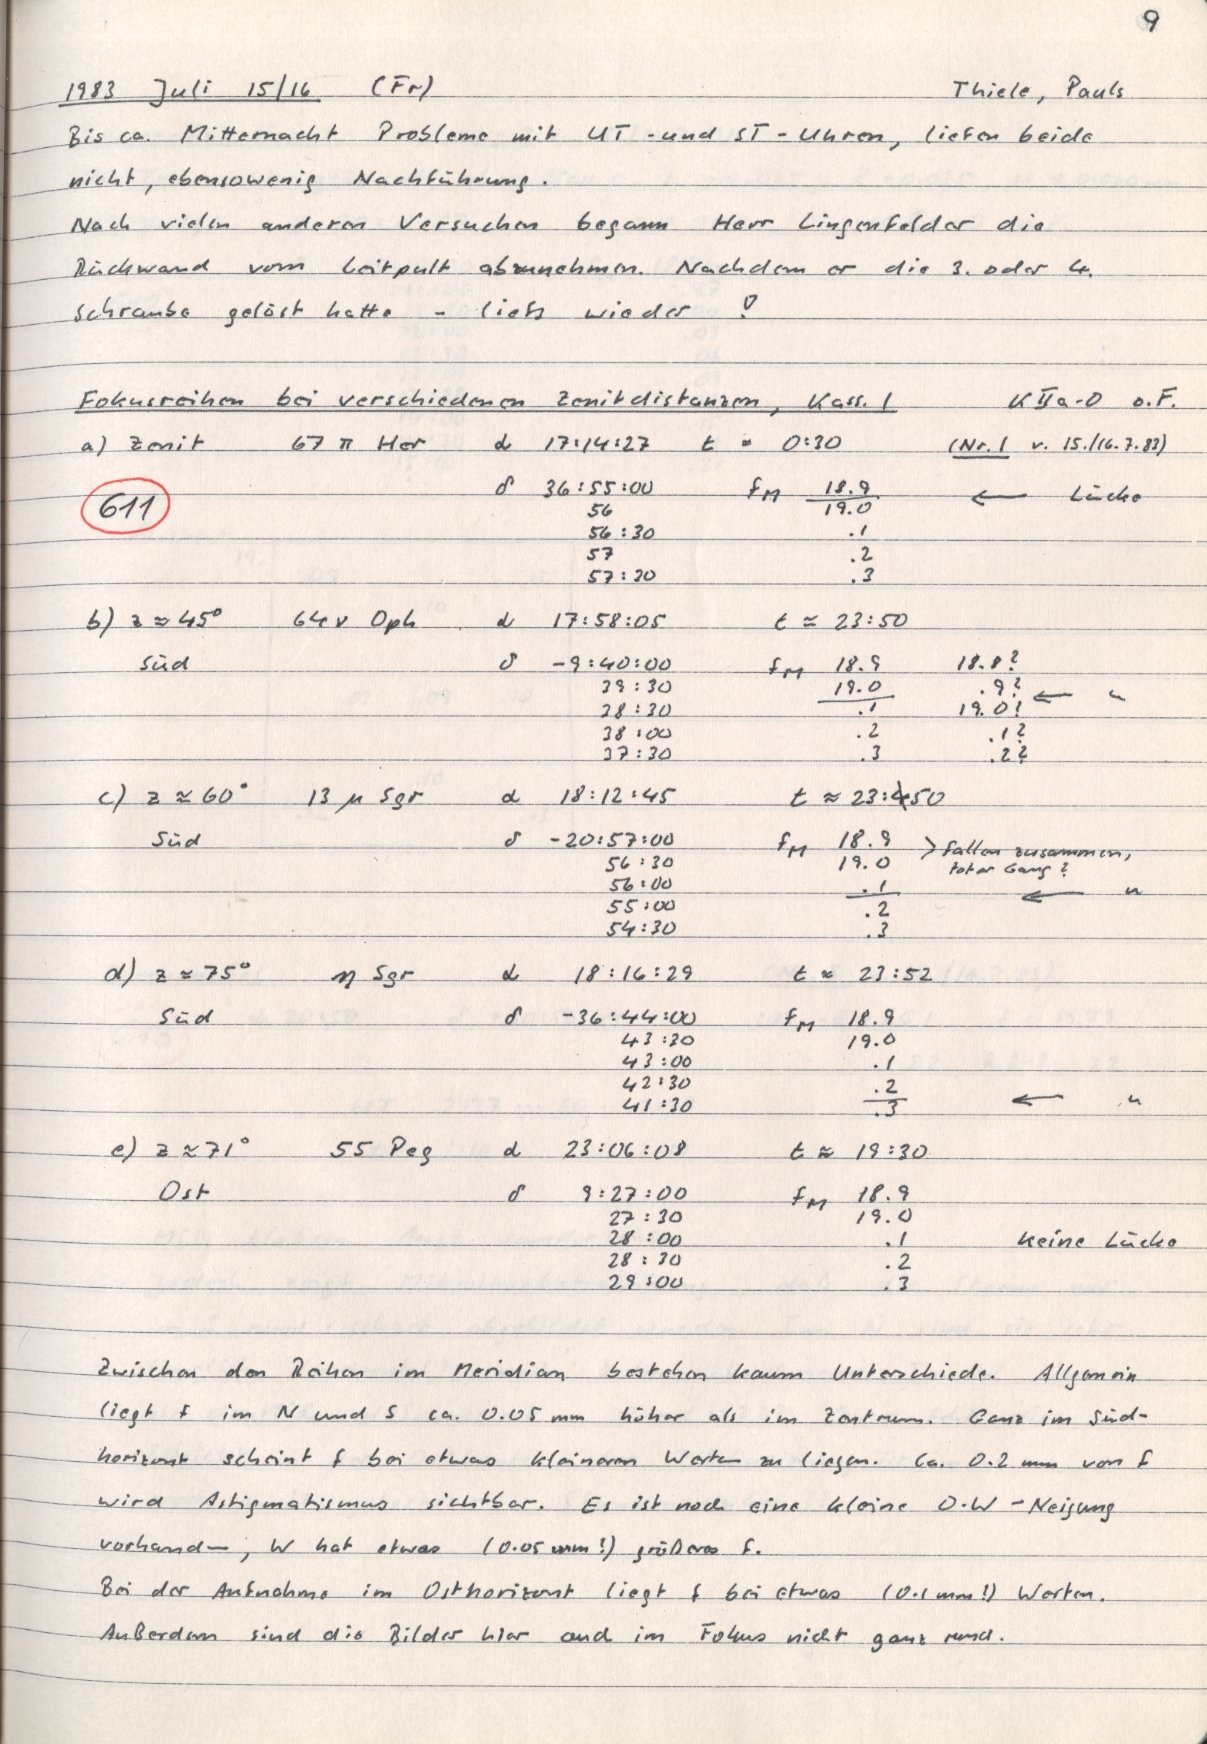 9
1983 Juli 15/16 (Fr) Thiele, Pauls
Bis ca. Mitternacht Probleme mit UT - und ST - Uhren, liefen beide
nicht, ebensowenig Nachführung.
Nach vielen anderen Versuchen begann Herr Lingenfelder die
Rückwand vom Leitpult abzunehmen. Nachdem er die 3. oder 4.
Schraube gelöst hatte - liefs wieder !
Fokusreihen bei verschiedenen Zenitdistanzen, Kass. 1 K IIa-O o.F.
a) Zenit 67 π Her α 17:14:27 t ≈ 0:30 (Nr. 1 v. 15./16.7.83)
611 δ 36:55:00 fM 18.9 ← Lücke
56 19.0
56:30 .1
57 .2
57:30 .3
b) z ≈ 45° 64 ν Oph α 17:58:05 t ≈ 23:50
Süd δ -9:40:00 fM 18.9 18.8?
39:30 19.0 .9? ← "
38:30 .1 19.0?
38:00 .2 .1?
37:30 .3 .2?
c) z ≈ 60° 13 μ Sgr α 18:12:45 t ≈ 23:50
Süd δ -20:57:00 fM 18.9 > fallen zusammen,
56:30 19.0 toter Gang?
56:00 .1 ← "
55:00 .2
54:30 .3
d) z ≈ 75° η Sgr α 18:16:29 t ≈ 23:52
Süd δ -36:44:00 fM 18.9
43:30 19.0
43:00 .1
42:30 .2
41:30 .3 ← "
e) z ≈ 71° 55 Peg α 23:06:08 t ≈ 19:30
Ost δ 9:27:00 fM 18.9
27:30 19.0
28:00 .1 keine Lücke
28:30 .2
29:00 .3
Zwischen den Reihen im Meridian bestehen kaum Unterschiede. Allgemein
liegt f im N und S ca. 0.05 mm höher als im Zentrum. Ganz im Süd-
horizont scheint f bei etwas kleineren Werten zu liegen. Ca. 0.2 mm von f
wird Astigmatismus sichtbar. Es ist noch eine kleine O-W - Neigung
vorhanden, W hat etwas (0.05 mm!) größeres f.
Bei der Aufnahme im Osthorizont liegt f bei etwas (0.1 mm!) Werten.
Außerdem sind die Bilder hier auch im Fokus nicht ganz rund.